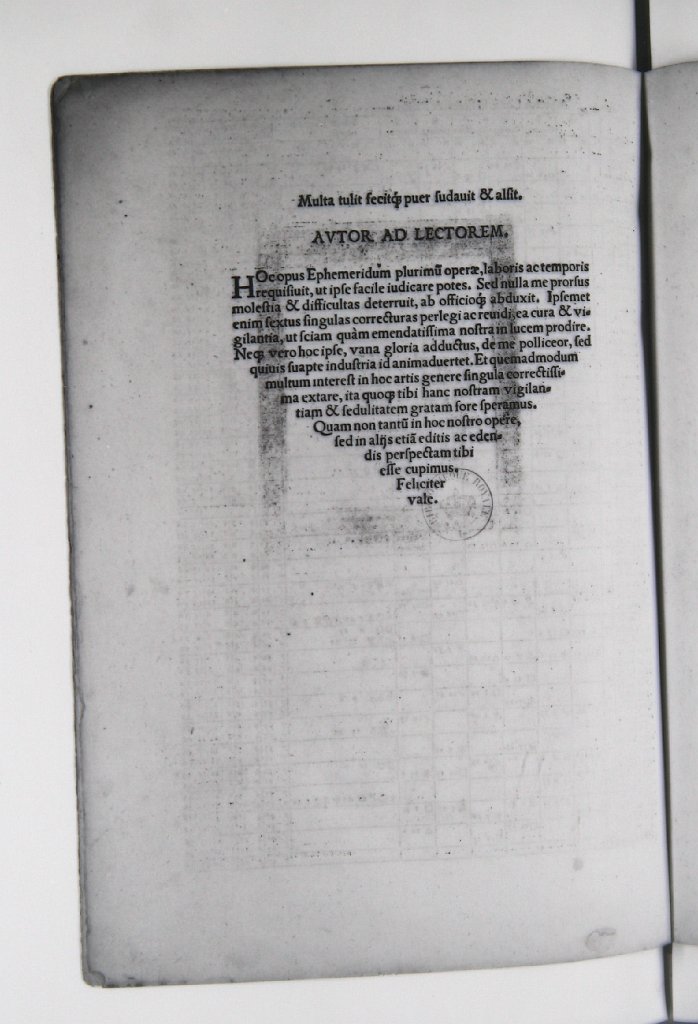 Multa tulit fecitq́ꝫ puer ſudauit & alſit.
AVTOR AD LECTOREM.
HOc opus Ephemeridum plurimū operæ, laboris ac temporis
requiſiuit, ut ipſe facile iudicare potes. Sed nulla me prorſus
moleſtia & difficultas deterruit, ab officioq́ꝫ abduxit. Ipſemet
enim ſextus ſingulas correcturas perlegi ac reuidi, ea cura & vi⸗
gilantia, ut ſciam quàm emendatiſſima noſtra in lucem prodire.
Neqꝫ vero hoc ipſe, vana gloria adductus, de me polliceor, ſed
quiuis ſuapte induſtria id animaduertet. Et quemadmodum
multum intereſt in hoc artis genere ſingula correctiſſi⸗
ma extare, ita quoqꝫ tibi hanc noſtram vigilan⸗
tiam & ſedulitatem gratam fore ſperamus.
Quam non tantū in hoc noſtro opere,
ſed in alijs etiā editis ac eden⸗
dis perſpectam tibi
eſſe cupimus.
Feliciter
vale.